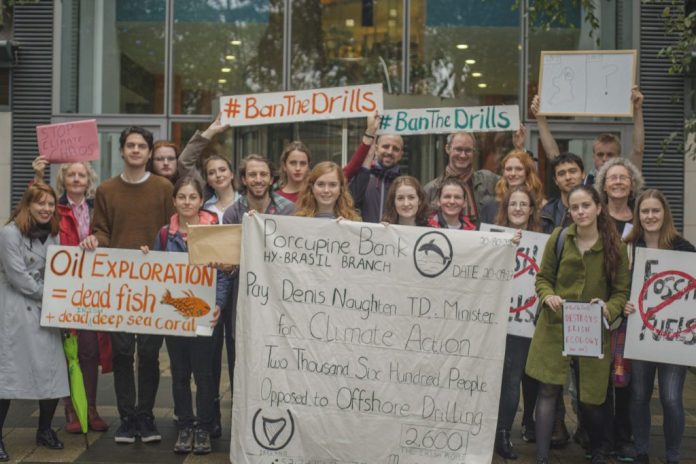 #BanTheDrills
#BanTheDrills
STOP
CLIMATE
CHAOS
Oil EXPLORATION
= dead fish
+ dead deep sea coral
Porcupine Bank
HY-BRASIL BRANCH
DATE
Pay Denis Naughten TD: Minister
for Climate Action
Two Thousand Six Hundred People
Opposed to Offshore Drilling
2,600
DESTROYS
IRISH
ECOLOGY
FOSSIL
FUELS